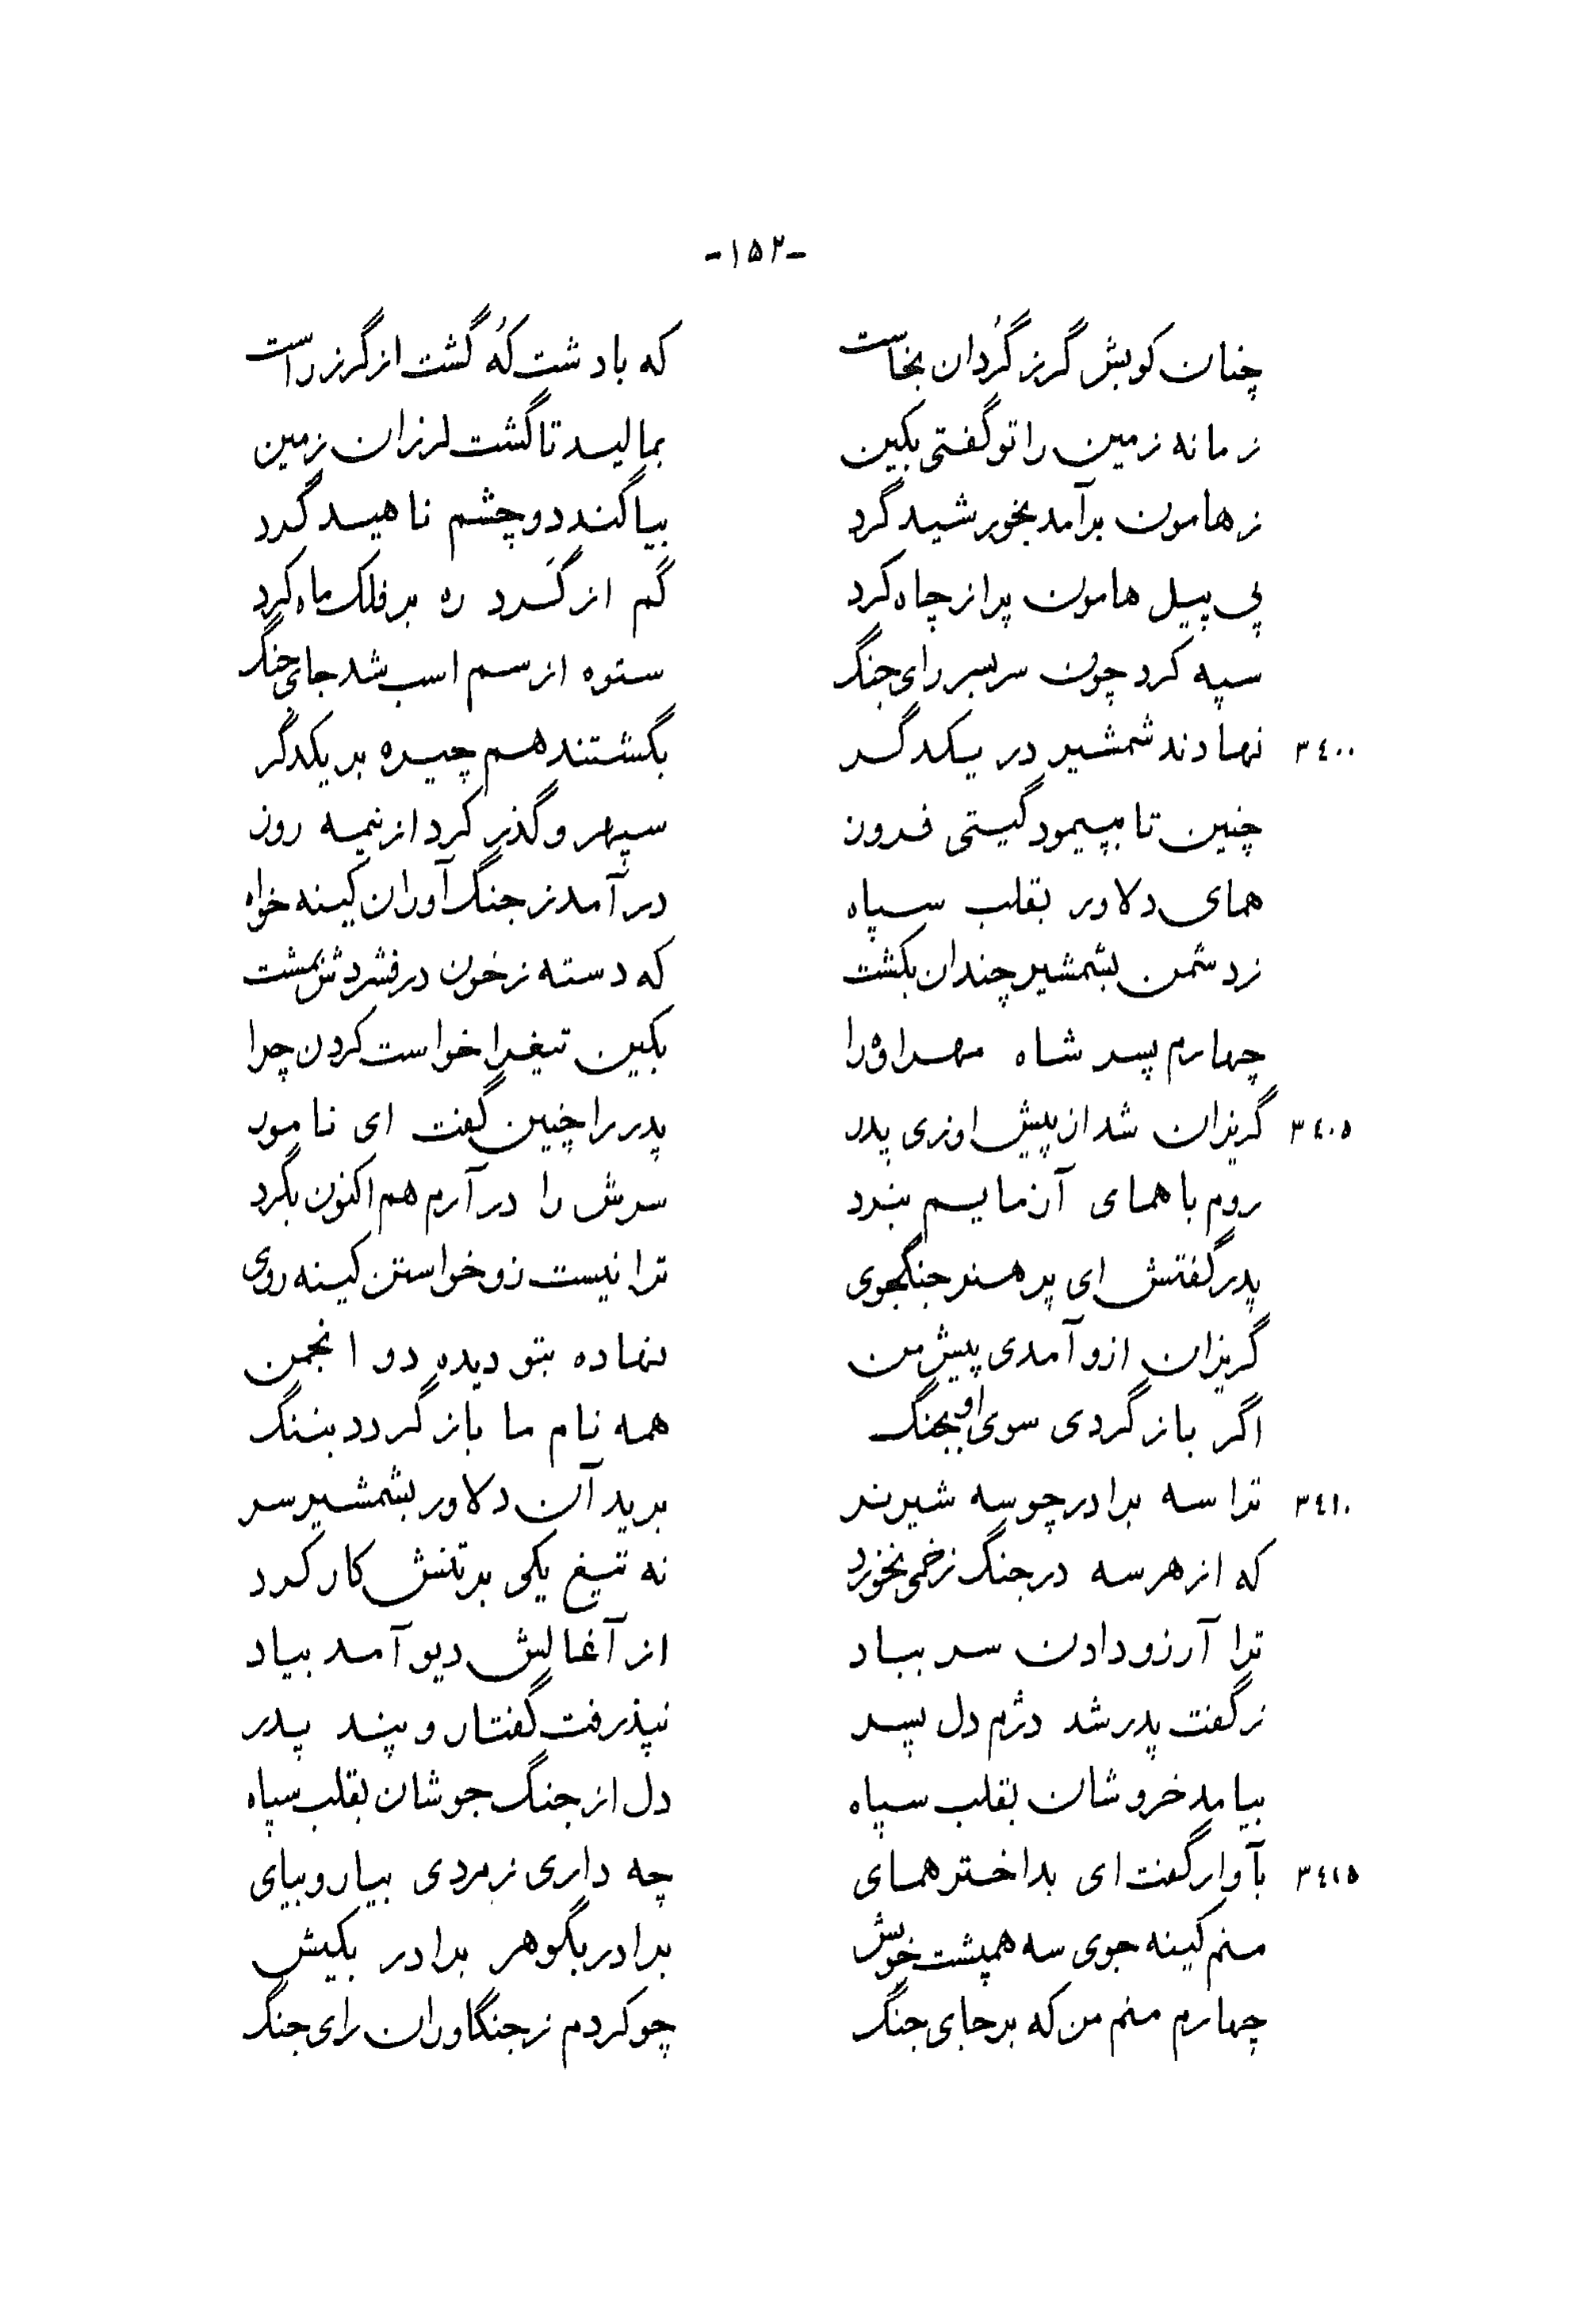 -۱۵۲-
چنان کوبش گرز گُردان بخاست که بادشت کُه گشت از گرز راست
زمانه زمین را تو گفتی بکین بمالید تا گشت لرزان زمین
ز هامون برآمد بخورشید گرد بیاکند دو چشم ناهید گرد
پی پیل هامون پر از چاه کرد گم از گَرد ره بر فلک ماه کرد
سپه کرد چون سربسر رای جنگ ستوه از سم اسب شد جای جنگ
۳۴۰۰ نهادند شمشیر در یکدگر بگشتند هم چیره بر یکدگر
چنین تا بپیمود گیتی فروز سپهر و گذر کرد از نیمه روز
همای دلاور بقلب سپاه درآمد ز جنگ آوران کینه خواه
ز دشمن بشمشیر چندان بکشت که دسته ز خون درفشردش بمشت
چهارم پسر شاه مهراوه را بکین تیغرا خواست کردن چرا
۳۴۰۵ گریزان شد از پیش او زی پدر پدر را چنین گفت ای نامور
روم با همای آزمایم نبرد سرش را درآرم هم اکنون بگرد
پدر گفتش ای پر هنر جنگجوی ترا نیست زو خواستن کینه روی
گریزان ازو آمدی پیش من نهاده بتو دیده دو انجمن
اگر باز گردی سوی او بجنگ همه نام ما باز گردد بننگ
۳۴۱۰ ترا سه برادر چو سه شیر نر برید آن دلاور بشمشیر سر
که از هر سه در جنگ زخمی نخورد نه تیغ یکی بر تنش کار کرد
ترا آرزو دادن سر بباد از آغالش دیو آمد بیاد
ز گفت پدر شد دژم دل پسر نپذرفت گفتار و پند پدر
بیامد خروشان بقلب سپاه دل از جنگ جوشان بقلب سپاه
۳۴۱۵ بآواز گفت ای بداختر همای چه داری ز مردی بیار و بیای
منم کینه جوی سه همپشت خویش برادر بگوهر برادر بکیش
چهارم منم من که بر جای جنگ چو کردم ز جنگاوران رای جنگ